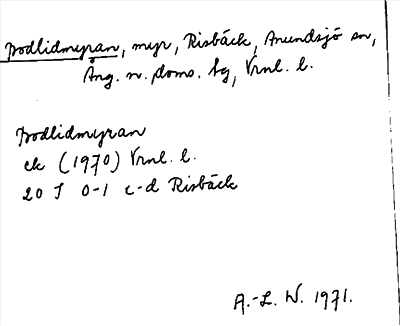 Bodlidmyran, myr, Risbäck, Anundsjö sn,
Ång. n. doms. bg, Vrnl. l.
Bodlidmyran
ek (1970) Vrnl. l.
20 J 0-1 c-d Risbäck
A.-L. W. 1971.